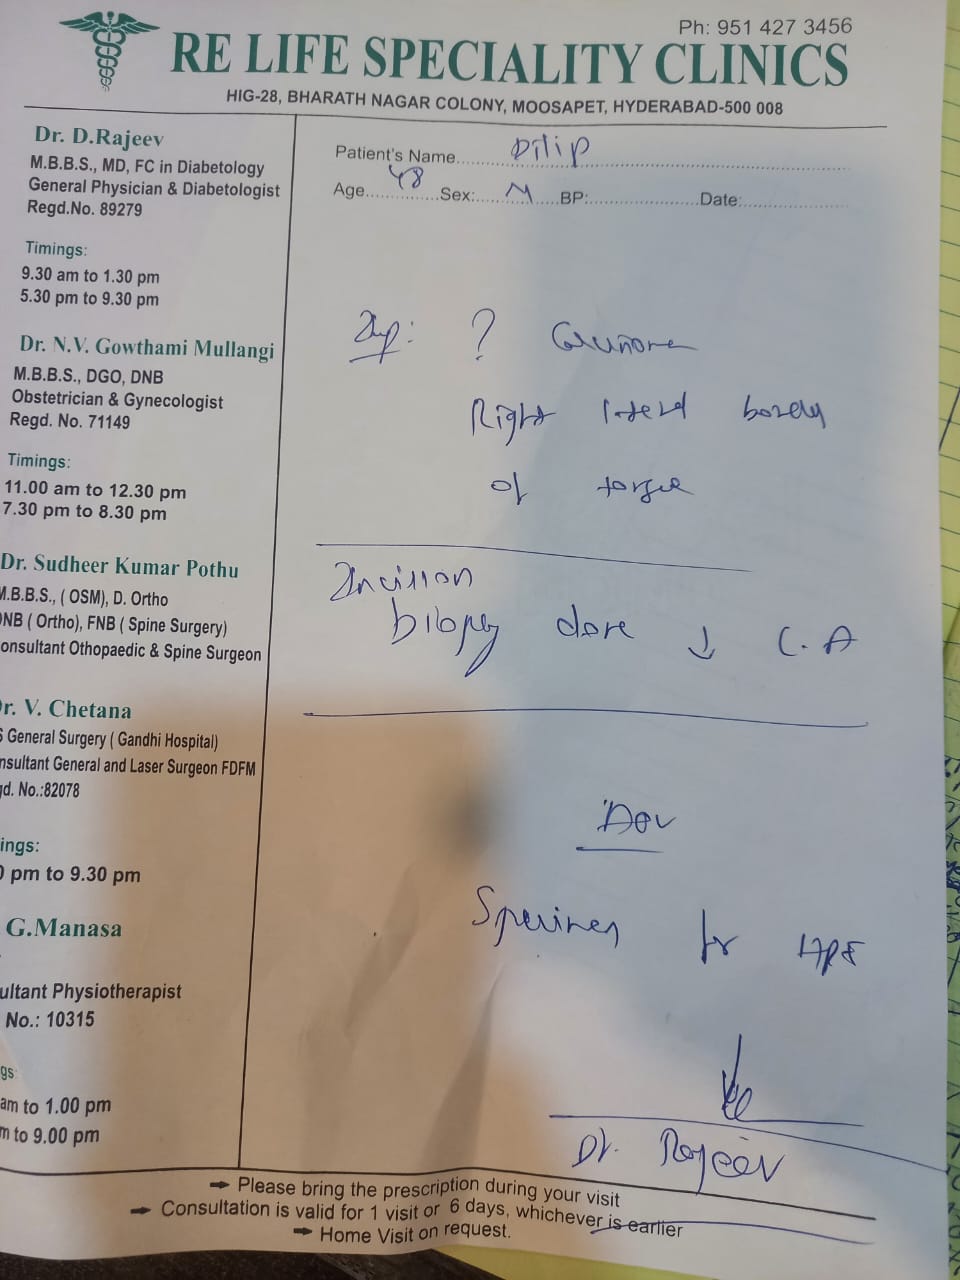 Ph: 951 427 3456
RE LIFE SPECIALITY CLINICS
HIG-28, BHARATH NAGAR COLONY, MOOSAPET, HYDERABAD-500 008
Dr. D.Rajeev
M.B.B.S., MD, FC in Diabetology
General Physician & Diabetologist
Regd.No. 89279
Timings:
9.30 am to 1.30 pm
5.30 pm to 9.30 pm
Dr. N.V. Gowthami Mullangi
M.B.B.S., DGO, DNB
Obstetrician & Gynecologist
Regd. No. 71149
Timings:
11.00 am to 12.30 pm
7.30 pm to 8.30 pm
Dr. Sudheer Kumar Pothu
M.B.B.S., ( OSM), D. Ortho
DNB ( Ortho), FNB ( Spine Surgery)
onsultant Othopaedic & Spine Surgeon
r. V. Chetana
S General Surgery ( Gandhi Hospital)
nsultant General and Laser Surgeon FDFM
gd. No.:82078
ings:
0 pm to 9.30 pm
G.Manasa
ultant Physiotherapist
No.: 10315
gs:
am to 1.00 pm
m to 9.00 pm
Patient's Name Dilip
Age 48 Sex: M BP: Date:
Imp: ? Carcinoma
Right lateral border
of tongue
Incision
biopsy done ↓ L.A
Adv
Specimen for HPE
Dr. Rajeev
➡ Please bring the prescription during your visit
➡ Consultation is valid for 1 visit or 6 days, whichever is earlier
➡ Home Visit on request.